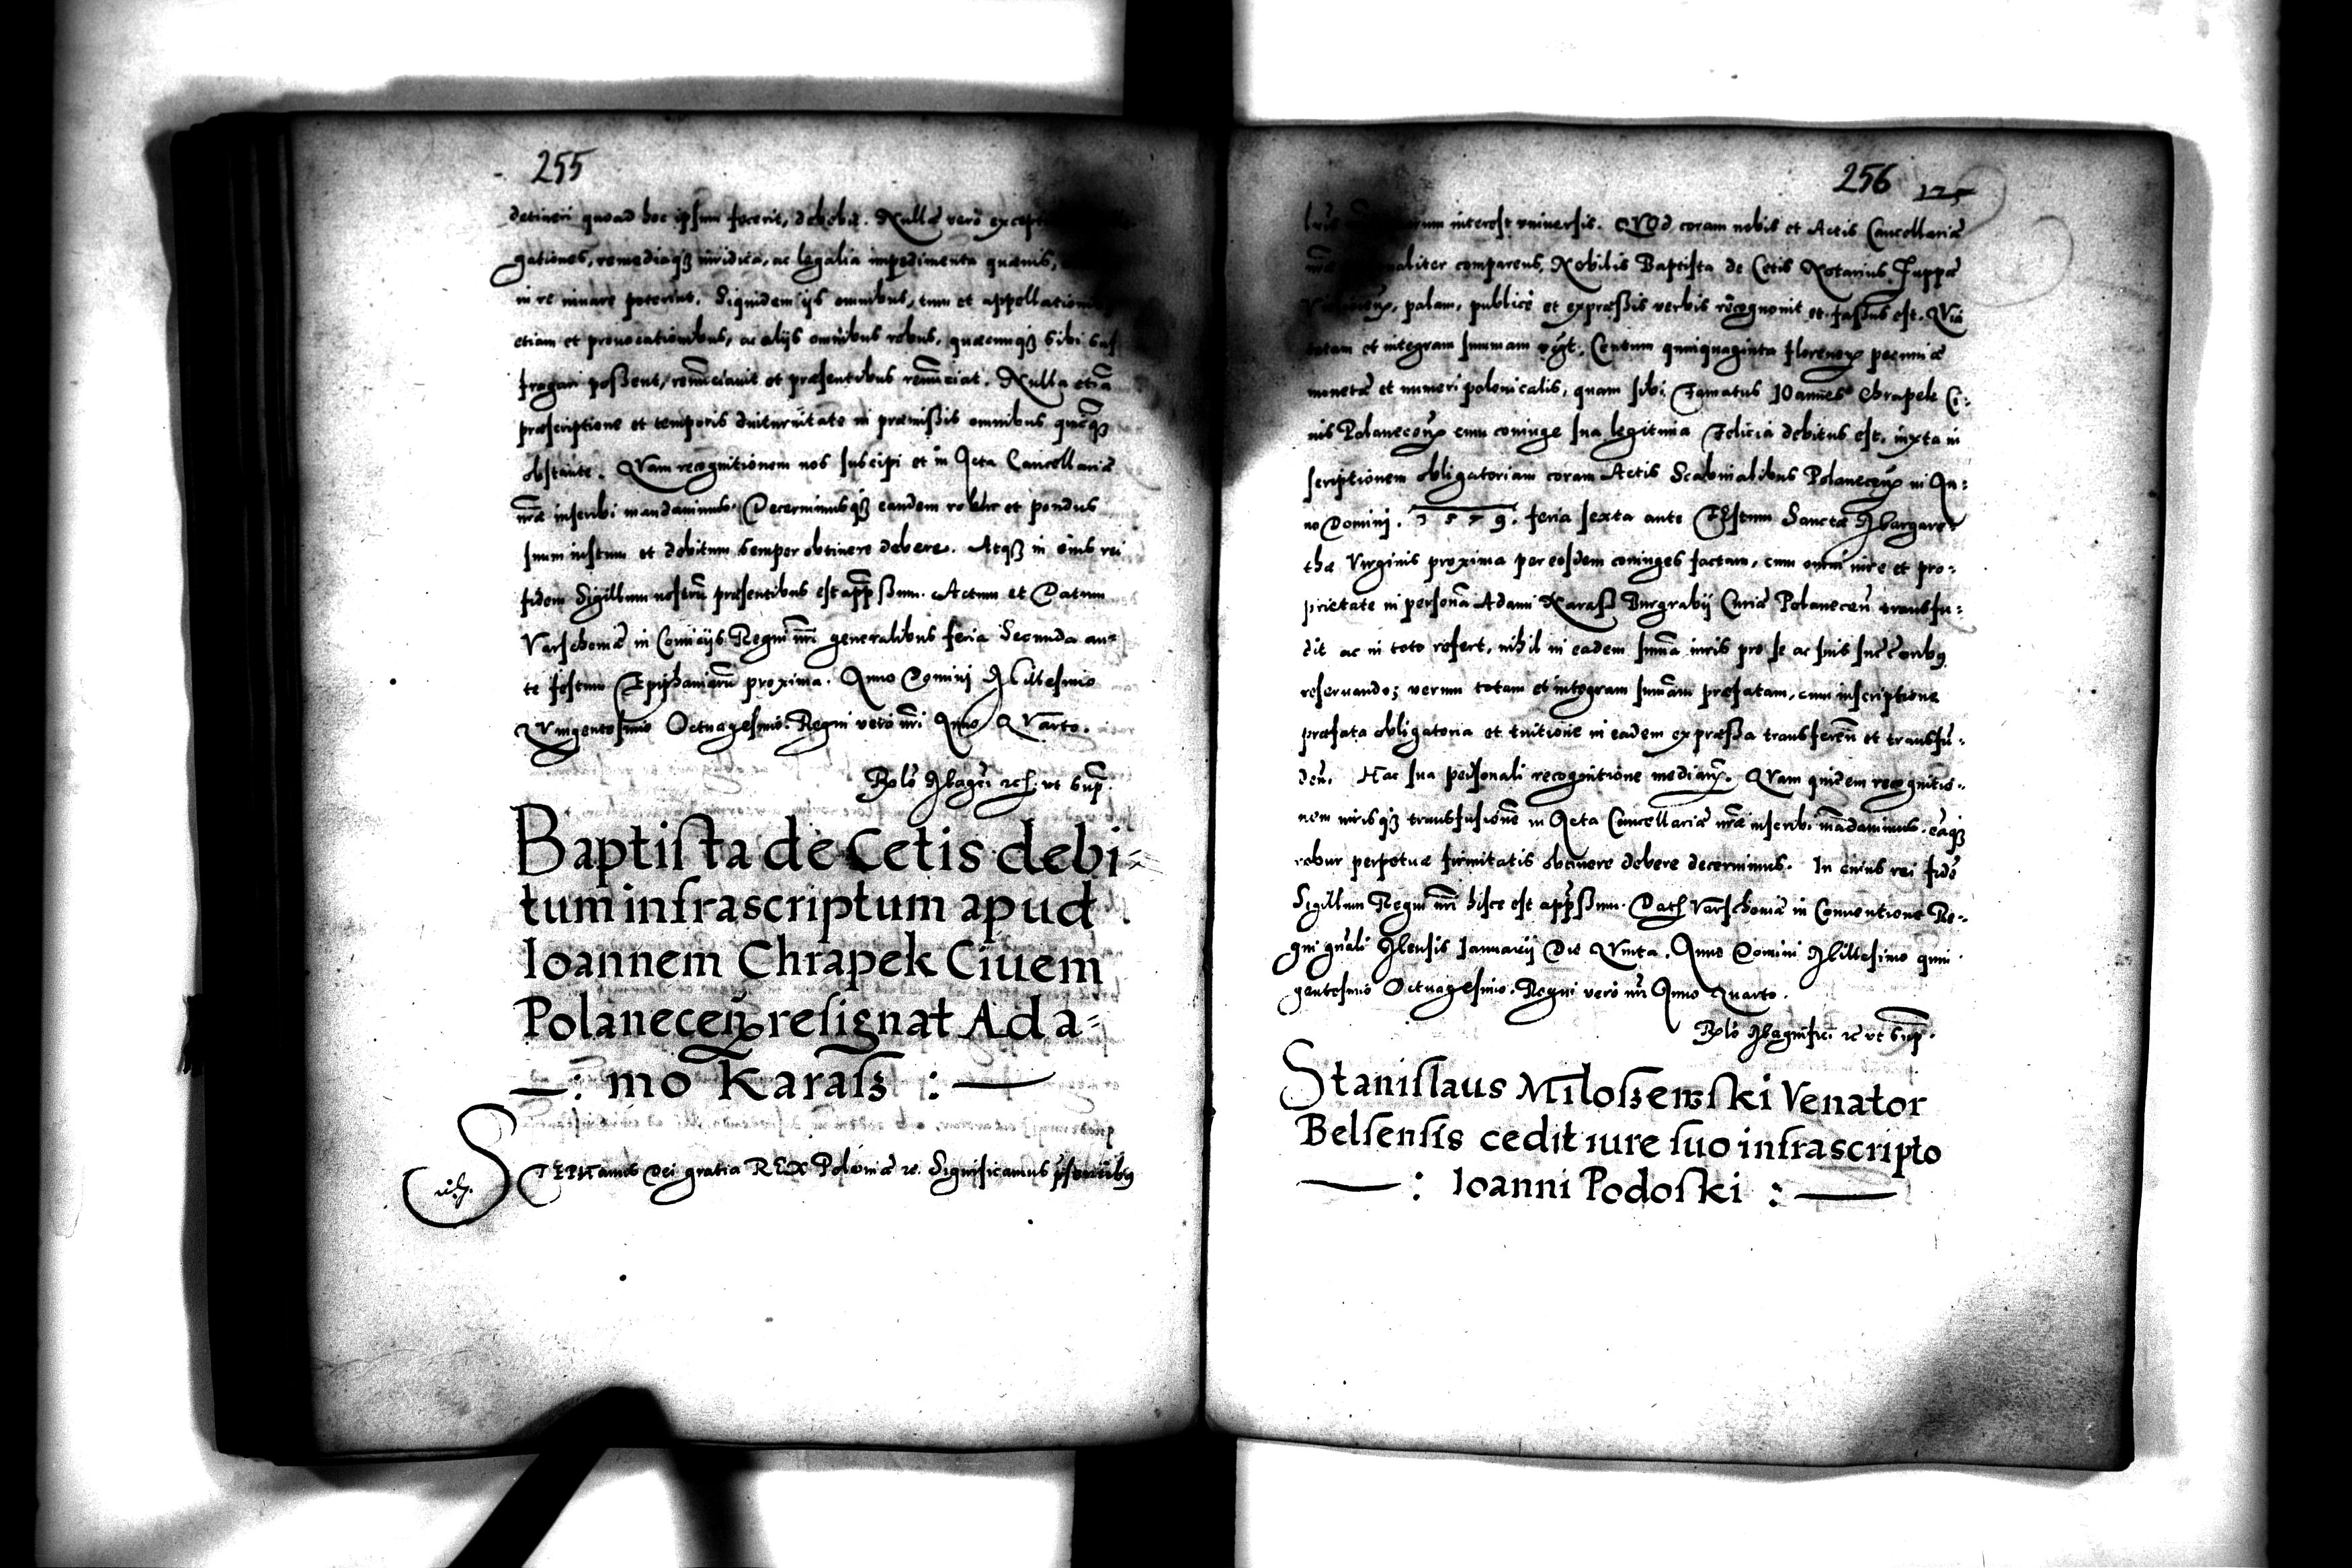 255
detineri quoad hoc ipsum fecerit, debebit. Nullæ verò except
gationes, remediaqȝ iuridica, ac legalia impedimenta quæuis,
in re iuuare poterint. Siquidem ijs omnibus, tum et appellationi
etiam et prouocationibus, ac alijs omnibus rebus, quæcunqȝ sibi suf
fragari possent, renūciauit et præsentibus renūciat. Nulla etiā
præscriptione et temporis diuturnitate in præmissis omnibus
obstante. Quam recognitionem nos suscipi et in Acta Cancellariæ
nr̄æ inscribi mandauimus. Decernimusqȝ eandem robur et pondus
suum iustum et debitum semper obtinere debere. Atqȝ in eius rei
fidem Sigillum nostrū præsentibus est app̄ssum. Actum et Datum
Varschouiæ in Comicijs Regni nr̄i generalibus feria Secunda an=
te festum Epiphaniarū proxima. Anno Domini Millesimo
Quingentesimo Octuagesimo. Regni verò nr̄i Anno Quarto.
Relō Mag̃ci ut sup̄.
Baptista de Cetis debi=
tum infrascriptum apud
Ioannem Chrapek Ciuem
Polaneceñ resignat Ada=
—: mo Karasz :—
STEPHanus Dei gratia REX Poloniæ Significamus p̃sentibꝰ
256 125
rum interest vniuersis. QVOd coram nobis et Actis Cancellariæ
comparens, Nobilis Baptista de Cetis Notarius Suppæ
palam, publicè et expræssis verbis recognouit et fassus est. Quia
totam et integram summam Centum quinquaginta florenoꝝ pecuniæ
monetæ et numeri polonicalis, quam sibi Famatus IOannes Chrapek Ci:
uis Polaneceñ cum coniuge sua legitima Felicia debitus est, iuxta in
scriptionem obligatoriam coram Actis Scabinalibus Polaneceñ in An:
no Domini. 1579. feria sexta ante Festum Sanctæ Margare=
thæ Virginis proxima per eosdem coniuges factam, cum omni iure et pro=
prietate in personā Adami Karasz Burgrabij Curiæ Polaneceñ transfu=
dit ac in toto refert, nihil in eadem sum̄a iuris pro se ac suis
reseruando; verum totam et integram sum̄am præfatam, cum inscriptione
præfata obligatoria et in eadem expræssa transfereñ et transfu=
deñ. Hac sua personali recognitione medianꝭ. Quam quidem recognitio=
nem iurisqȝ transfusionē in Acta Cancellariæ nr̄æ inscribi mādauimus. eāqȝ
robur perpetuæ firmitatis obtinere debere decernimus. In cuius rei fidē
Sigillum Regni nr̄i hisce est app̄ssum. Datꝭ Varschouiæ in Conuentione Re=
gni gñali Mensis Ianuarij Die Quinta. Anno Domini Millesimo quin=
gentesimo Octuagesimo. Regni verò nr̄i Anno Quarto.
Relō Magnifici ut sup̄.
Stanislaus Miloszewski Venator
Belsensis cedit iure suo infrascripto
—: Ioanni Podoski :—